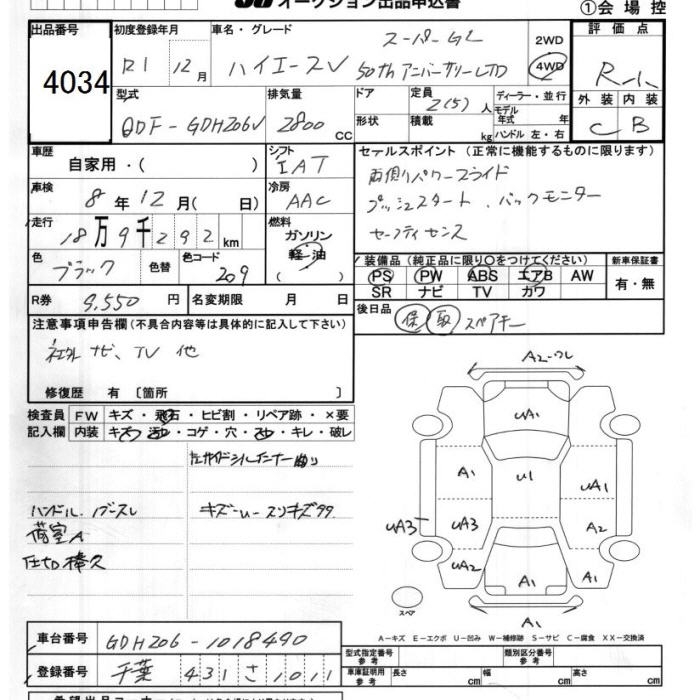 オークション出品申込書
①会場控
出品番号
4034
初度登録年月
R1 12月
車名・グレード
スーパーGL
ハイエースV 50thアニバーサリーLTD
2WD
4WD
評価点
R-1
外装 内装
C B
型式
QDF-GDH206V
排気量
2800 CC
ドア
形状
定員
2(5)人
積載
kg
ディーラー・並行
モデル年式 年
ハンドル 左・右
車歴
自家用・( )
シフト
IAT
セールスポイント (正常に機能するものに限ります)
両側パワースライド
プッシュスタート、バックモニター
セーフティセンス
車検
8年12月( 日)
冷房
AAC
走行
18万9千292km
燃料
ガソリン
軽・油
( )
色
ブラック
色替
色コード
209
装備品 (純正品に限り○をつけてください)
PS PW ABS エアB AW
SR ナビ TV カワ
新車保証書
有・無
R券 9,550円
名変期限 月 日
後日品
保 取 スペアキー
注意事項申告欄(不具合内容等は具体的に記入して下さい)
社外ナビ、TV 他
修復歴 有〔箇所 〕
検査員記入欄
FW キズ・飛石・ヒビ割・リペア跡・×要
内装 キズ・汚・コゲ・穴・・キレ・破レ
ハンドル
荷室A
キズ-U-スリキズ
A2-ワレ
UA1
A1
U1
UA1
UA3
UA3
A2
UA2
A1
A1
A1
スペア
A-キズ E-エクボ U-凹み W-補修跡 S-サビ C-腐食 XX-交換済
車台番号 GDH206-1018490
登録番号 千葉 431 さ 1011
型式指定番号 参考
類別区分番号 参考
車庫証明用 参考
長さ cm 幅 cm 高さ cm